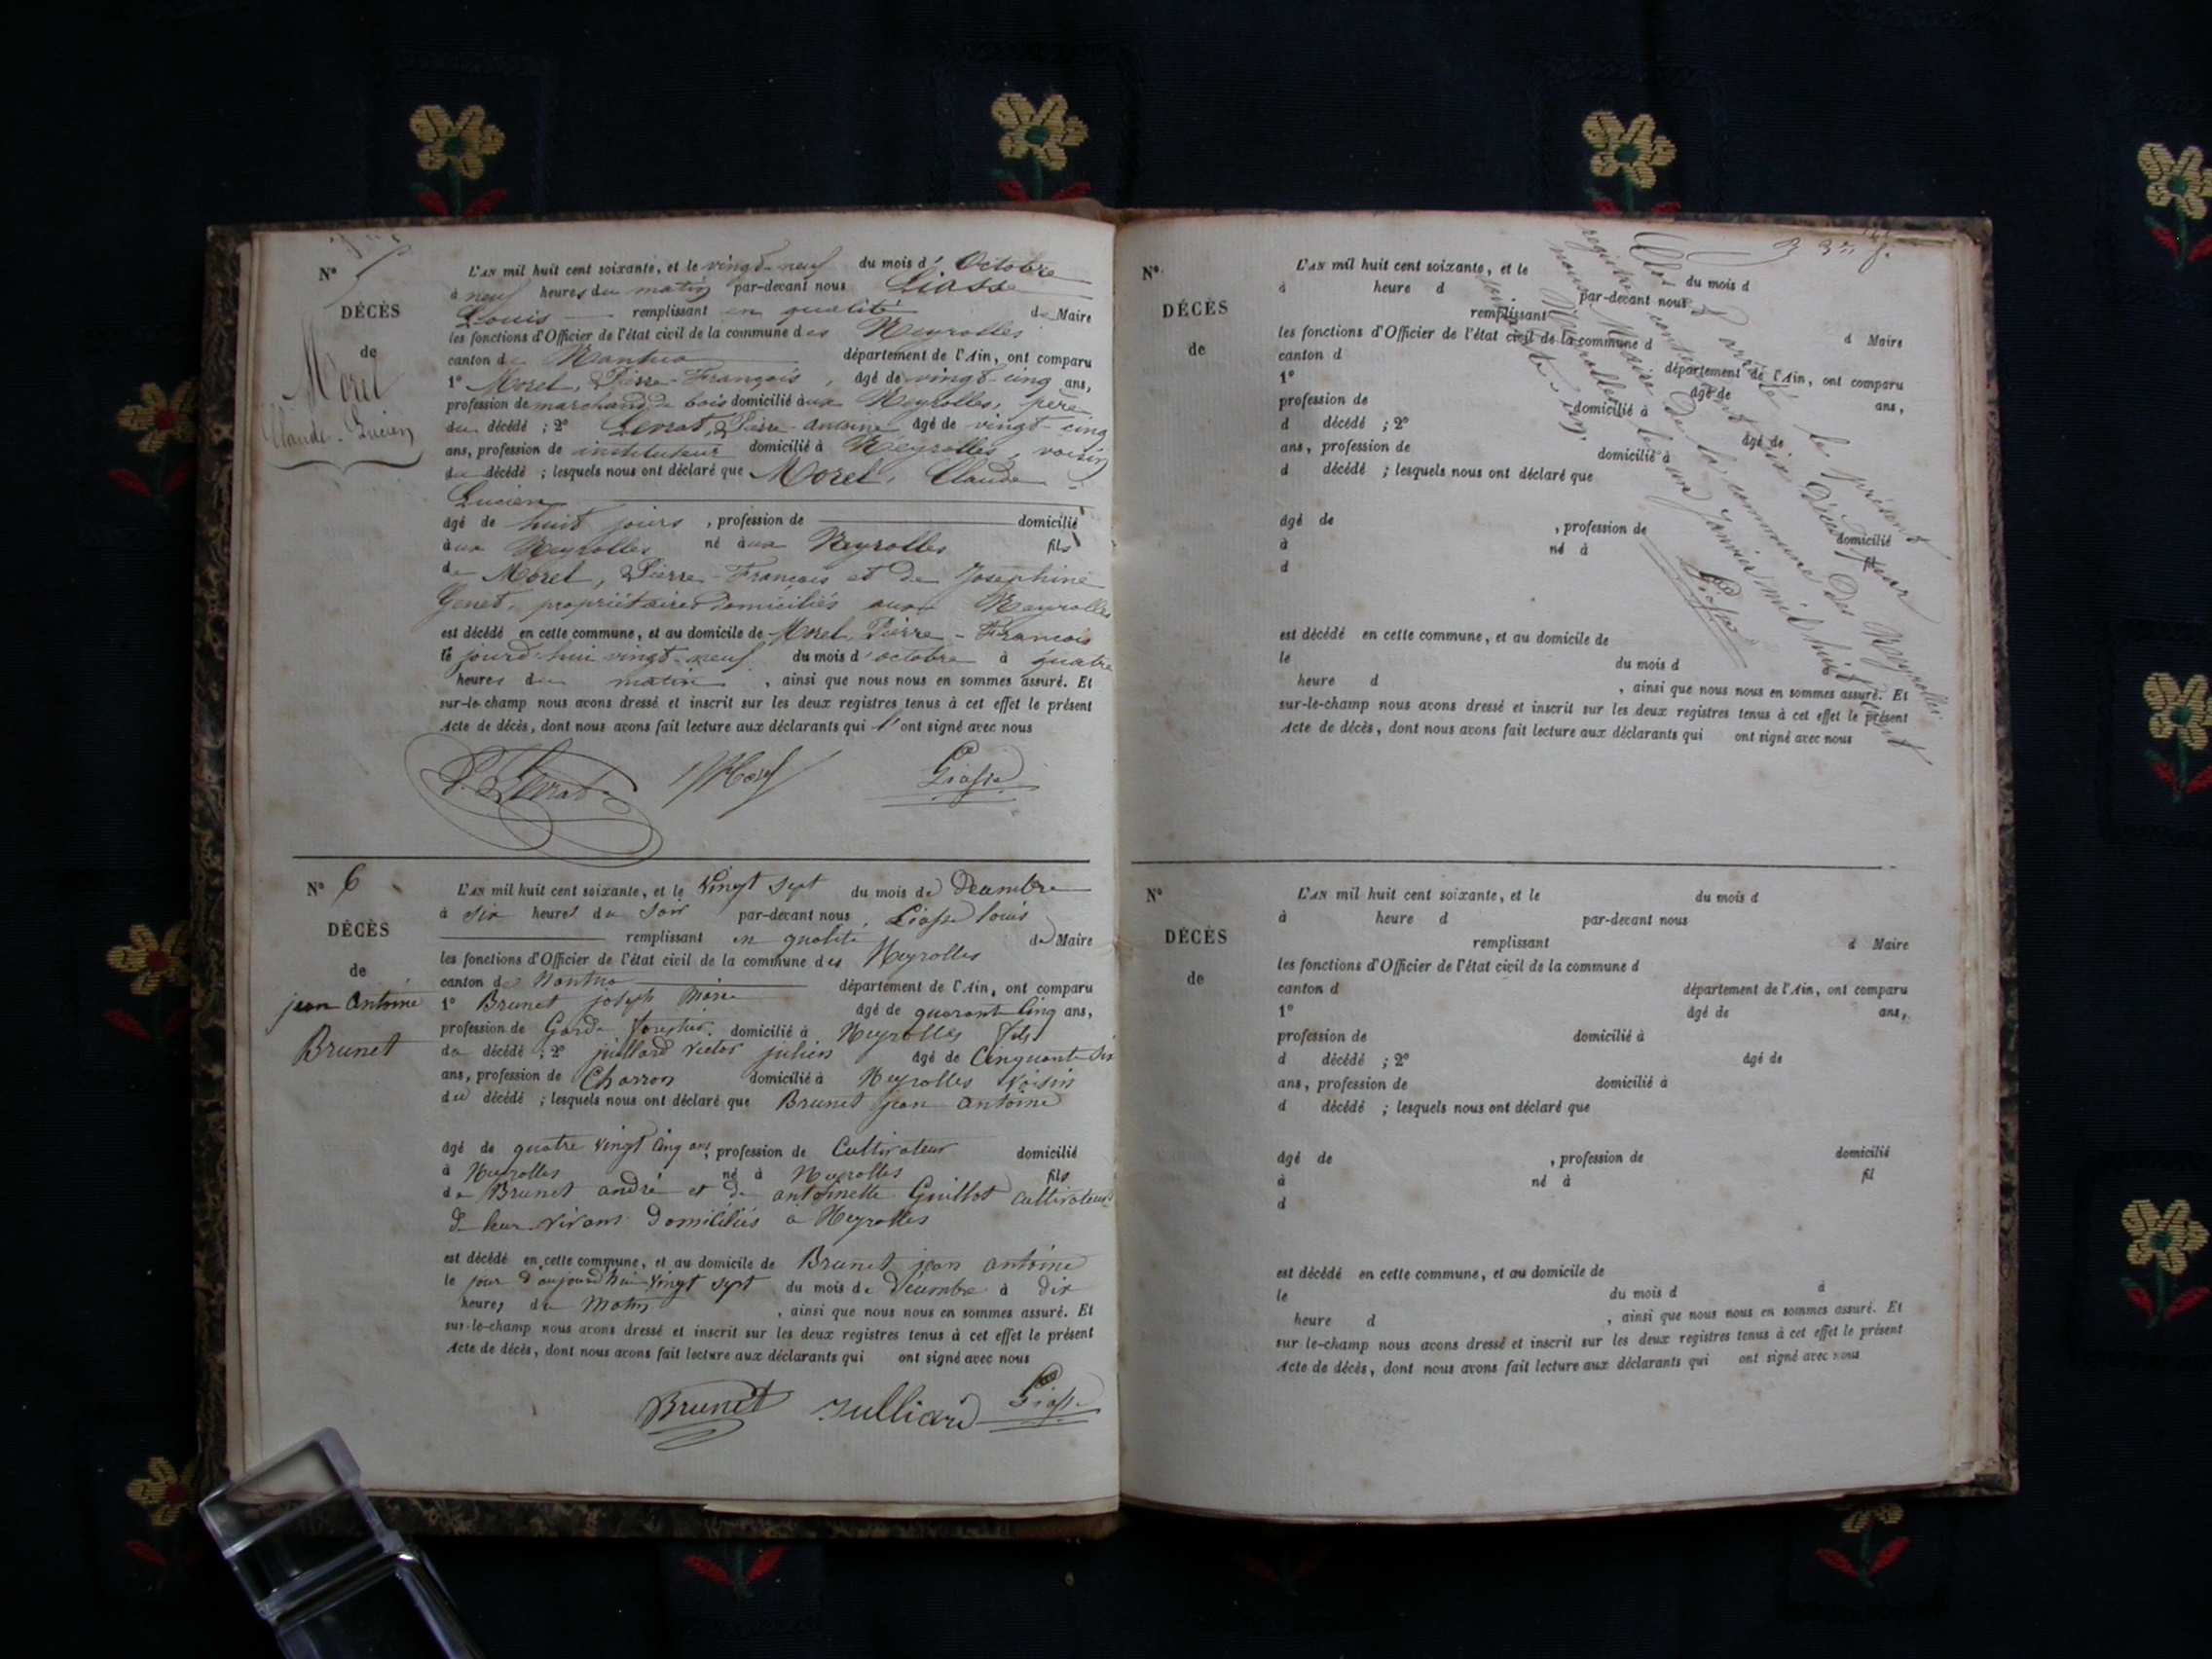 N° 5
DÉCÈS
de
Morel
Claude-Lucien
L'AN mil huit cent soixante, et le vingt-neuf du mois d'Octobre
à neuf heures du matin par-devant nous Liasse
Louis remplissant en qualité de Maire
les fonctions d'Officier de l'état civil de la commune des Neyrolles
canton de Nantua département de l'Ain, ont comparu
1° Morel, Pierre-François, âgé de vingt-cinq ans,
profession de marchand de bois domicilié aux Neyrolles, père
du décédé ; 2° Pierre-antoine âgé de vingt-cinq
ans, profession de instituteur domicilié à Neyrolles, voisin
du décédé ; lesquels nous ont déclaré que Morel, Claude-
Lucien
âgé de huit jours , profession de domicilié
aux Neyrolles né aux Neyrolles fils
de Morel, Pierre-François et de Josephine
Genet, propriétaires domiciliés aux Neyrolles
est décédé en cette commune, et au domicile de Morel, Pierre-François
le jourd'hui vingt-neuf du mois d'octobre à quatre
heures du matin , ainsi que nous nous en sommes assuré. Et
sur-le-champ nous avons dressé et inscrit sur les deux registres tenus à cet effet le présent
Acte de décès, dont nous avons fait lecture aux déclarants qui l'ont signé avec nous
Morel Liasse
N° 6
DÉCÈS
de
jean Antoine
Brunet
L'AN mil huit cent soixante, et le Vingt sept du mois de Decembre
à six heures du Soir par-devant nous Liasse louis
remplissant en qualité de Maire
les fonctions d'Officier de l'état civil de la commune des Neyrolles
canton de Nantua département de l'Ain, ont comparu
1° Brunet joseph Marie âgé de quarant Cinq ans,
profession de Garde forestier domicilié à Neyrolles fils
du décédé ; 2° juillard victor julien âgé de Cinquante Six
ans, profession de Charron domicilié à Neyrolles Voisin
du décédé ; lesquels nous ont déclaré que Brunet jean antoine
âgé de quatre vingt Cinq ans, profession de Cultivateur domicilié
à Neyrolles né à Neyrolles fils
de Brunet andré et de antoinette Guillot Cultivateurs
De leur vivans Domiciliés à Neyrolles
est décédé en cette commune, et au domicile de Brunet jean antoine
le jour d'aujourd'hui Vingt sept du mois de Décembre à dix
heures du Matin , ainsi que nous nous en sommes assuré. Et
sur-le-champ nous avons dressé et inscrit sur les deux registres tenus à cet effet le présent
Acte de décès, dont nous avons fait lecture aux déclarants qui ont signé avec nous
Brunet Julliard Liasse
N°
DÉCÈS
de
L'AN mil huit cent soixante, et le du mois d
à heure d par-devant nous
remplissant d Maire
les fonctions d'Officier de l'état civil de la commune d
canton d département de l'Ain, ont comparu
1° âgé de ans,
profession de domicilié à
d décédé ; 2° âgé de
ans, profession de domicilié à
d décédé ; lesquels nous ont déclaré que
âgé de , profession de domicilié
à né à fil
d
est décédé en cette commune, et au domicile de
le du mois d
heure d , ainsi que nous nous en sommes assuré. Et
sur-le-champ nous avons dressé et inscrit sur les deux registres tenus à cet effet le présent
Acte de décès, dont nous avons fait lecture aux déclarants qui ont signé avec nous
Clos et arrêté le présent
registre contenant six Décès par
nous Maire de la commune des Neyrolles
Neyrolles le un Janvier mil huit cent
soixante-un.
Liasse
N°
DÉCÈS
de
L'AN mil huit cent soixante, et le du mois d
à heure d par-devant nous
remplissant d Maire
les fonctions d'Officier de l'état civil de la commune d
canton d département de l'Ain, ont comparu
1° âgé de ans,
profession de domicilié à
d décédé ; 2° âgé de
ans, profession de domicilié à
d décédé ; lesquels nous ont déclaré que
âgé de , profession de domicilié
à né à fil
d
est décédé en cette commune, et au domicile de
le du mois d à
heure d , ainsi que nous nous en sommes assuré. Et
sur le-champ nous avons dressé et inscrit sur les deux registres tenus à cet effet le présent
Acte de décès, dont nous avons fait lecture aux déclarants qui ont signé avec nous